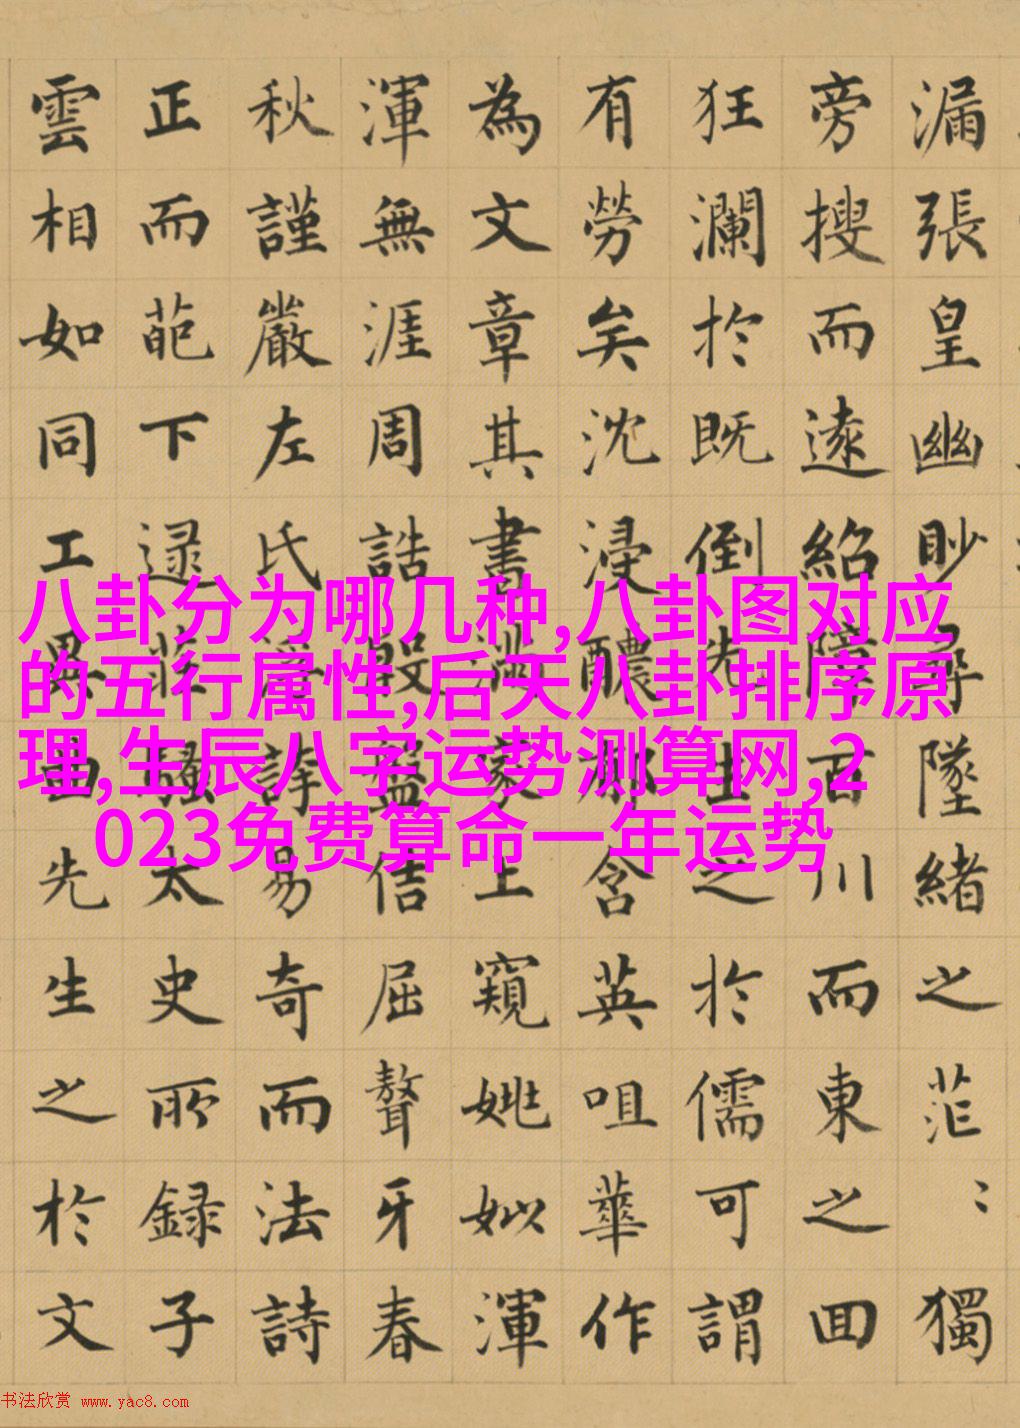 漏張皇幽眇尋墜緒之茫〻獨
旁搜而遠紹障百川而東之回
狂瀾於既倒先生之於儒可謂
有勞矣沈浸醲郁含英咀華作
為文章其書滿家上窺姚姒渾
渾無涯周誥殷盤佶屈聱牙春
秋謹嚴左氏浮誇易奇而法詩
正而葩下逮莊騷太史所録子
雲相如同工異曲先生之於文
八卦分为哪几种,八卦图对应
的五行属性,后天八卦排序原
理,生辰八字运势测算网,2
023免费算命一年运势
书法欣赏 www.yac8.com